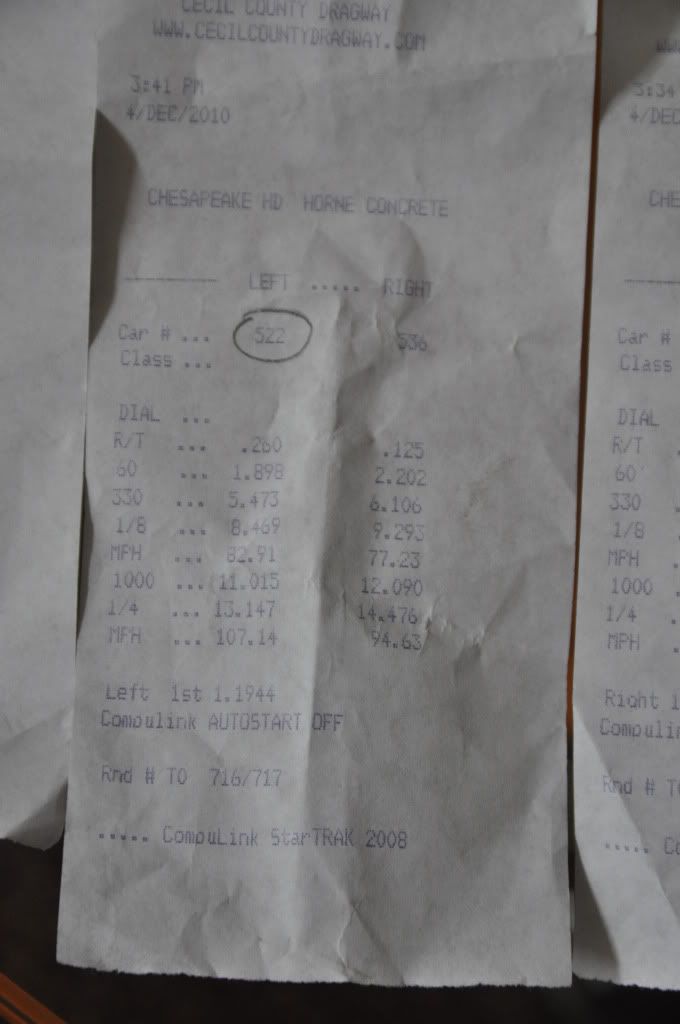 CECIL COUNTY DRAGWAY
WWW.CECILCOUNTYDRAGWAY.COM
3:41 PM
4/DEC/2010
CHESAPEAKE HD HORNE CONCRETE
---------- LEFT ..... RIGHT
Car # ... 522 536
Class ...
DIAL ...
R/T ... .260 .125
60 ... 1.898 2.202
330 ... 5.473 6.106
1/8 ... 8.469 9.293
MPH ... 82.91 77.23
1000 ... 11.015 12.090
1/4 ... 13.147 14.476
MPH ... 107.14 94.63
Left 1st 1.1944
Compulink AUTOSTART OFF
Rnd # TO 716/717
..... CompuLink StarTRAK 2008
3:34
4/DEC
CHE
Car #
Class
DIAL
R/T
60'
330
1/8
MPH
1000
1/4
MPH
Right 1
Compulin
Rnd # T
..... Co